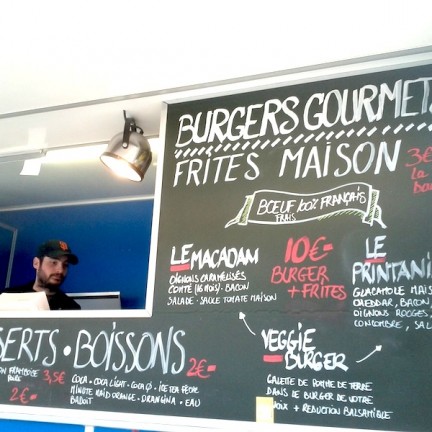 BURGERS GOURMETS
FRITES MAISON
3€
la
BŒUF 100% FRANÇAIS
FRAIS
LE MACADAM
OIGNONS CARAMÉLISÉS
COMTÉ (16 MOIS) - BACON
SALADE - SAUCE TOMATE MAISON
10€-
BURGER
+ FRITES
LE
PRINTANI
GUACAMOLE MAIS
CHEDDAR, BACON,
OIGNONS ROUGES,
CONCOMBRE, SAL
VEGGIE
BURGER
GALETTE DE POMME DE TERRE
DANS LE BURGER DE VOTRE
OIX + REDUCTION BALSAMIQUE
SERTS • BOISSONS
ON FRAMBOISE
3,5€
2€-
2€-
COCA - COCA LIGHT - COCA Ø - ICE TEA PÊCHE
MINUTE MAID ORANGE - ORANGINA - EAU
BADOIT